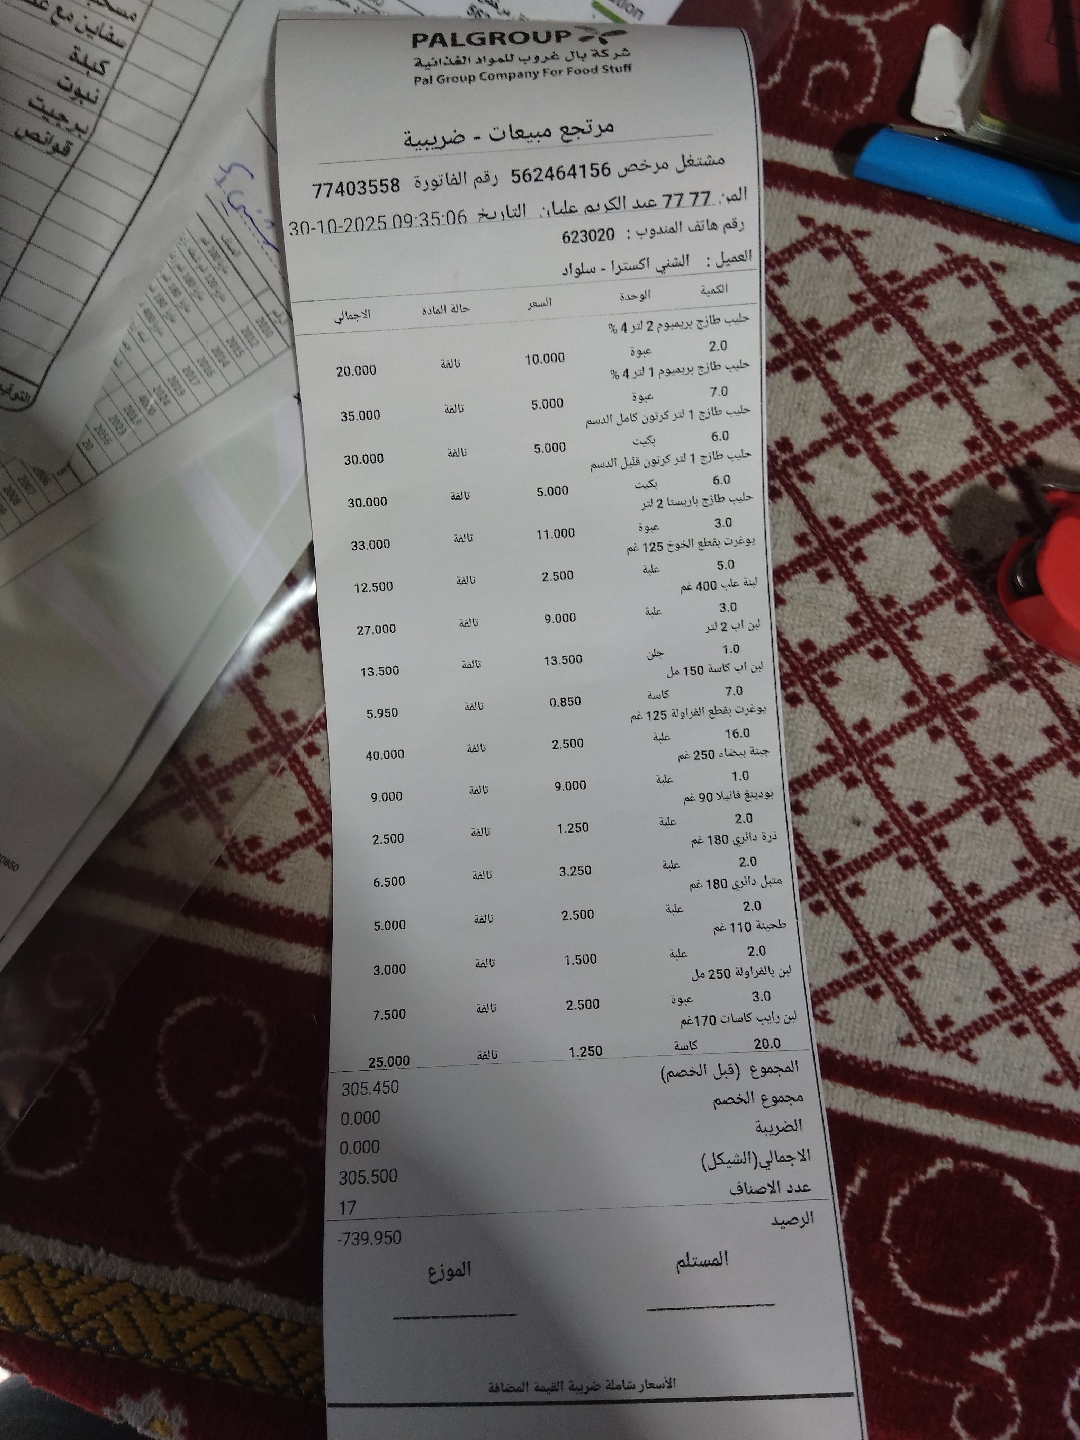 PALGROUP
شركة بال غروب للمواد الغذائية
Pal Group Company For Food Stuff
مرتجع مبيعات - ضريبية
مشتغل مرخص 562464156 رقم الفاتورة 77403558
77 77 عبد الكريم عليان التاريخ 30-10-2025 09:35:06
رقم هاتف المندوب : 623020
العميل : الشني اكسترا - سلواد
الكمية الوحدة السعر حالة المادة الاجمالي
حليب طازج بريميوم 2 لتر 4 %
2.0 عبوة 10.000 تالفة 20.000
حليب طازج بريميوم 1 لتر 4 %
7.0 عبوة 5.000 تالفة 35.000
حليب طازج 1 لتر كرتون كامل الدسم
6.0 بكيت 5.000 تالفة 30.000
حليب طازج 1 لتر كرتون قليل الدسم
6.0 بكيت 5.000 تالفة 30.000
حليب طازج باريستا 2 لتر
3.0 عبوة 11.000 تالفة 33.000
يوغرت بقطع الخوخ 125 غم
5.0 علبة 2.500 تالفة 12.500
لبنة علب 400 غم
3.0 علبة 9.000 تالفة 27.000
لبن اب 2 لتر
1.0 جلن 13.500 تالفة 13.500
لبن اب كاسة 150 مل
7.0 كاسة 0.850 تالفة 5.950
يوغرت بقطع الفراولة 125 غم
16.0 علبة 2.500 تالفة 40.000
جبنة بيضاء 250 غم
1.0 علبة 9.000 تالفة 9.000
بودينغ فانيلا 90 غم
2.0 علبة 1.250 تالفة 2.500
ذرة دائري 180 غم
2.0 علبة 3.250 تالفة 6.500
متبل دائري 180 غم
2.0 علبة 2.500 تالفة 5.000
طحينة 110 غم
2.0 علبة 1.500 تالفة 3.000
لبن بالفراولة 250 مل
3.0 عبوة 2.500 تالفة 7.500
لبن رايب كاسات 170غم
20.0 كاسة 1.250 تالفة 25.000
المجموع (قبل الخصم) 305.450
مجموع الخصم 0.000
الضريبة 0.000
الاجمالي(الشيكل) 305.500
عدد الاصناف 17
الرصيد -739.950
المستلم الموزع
الأسعار شاملة ضريبة القيمة المضافة
كبلة
نبوت
قوانص